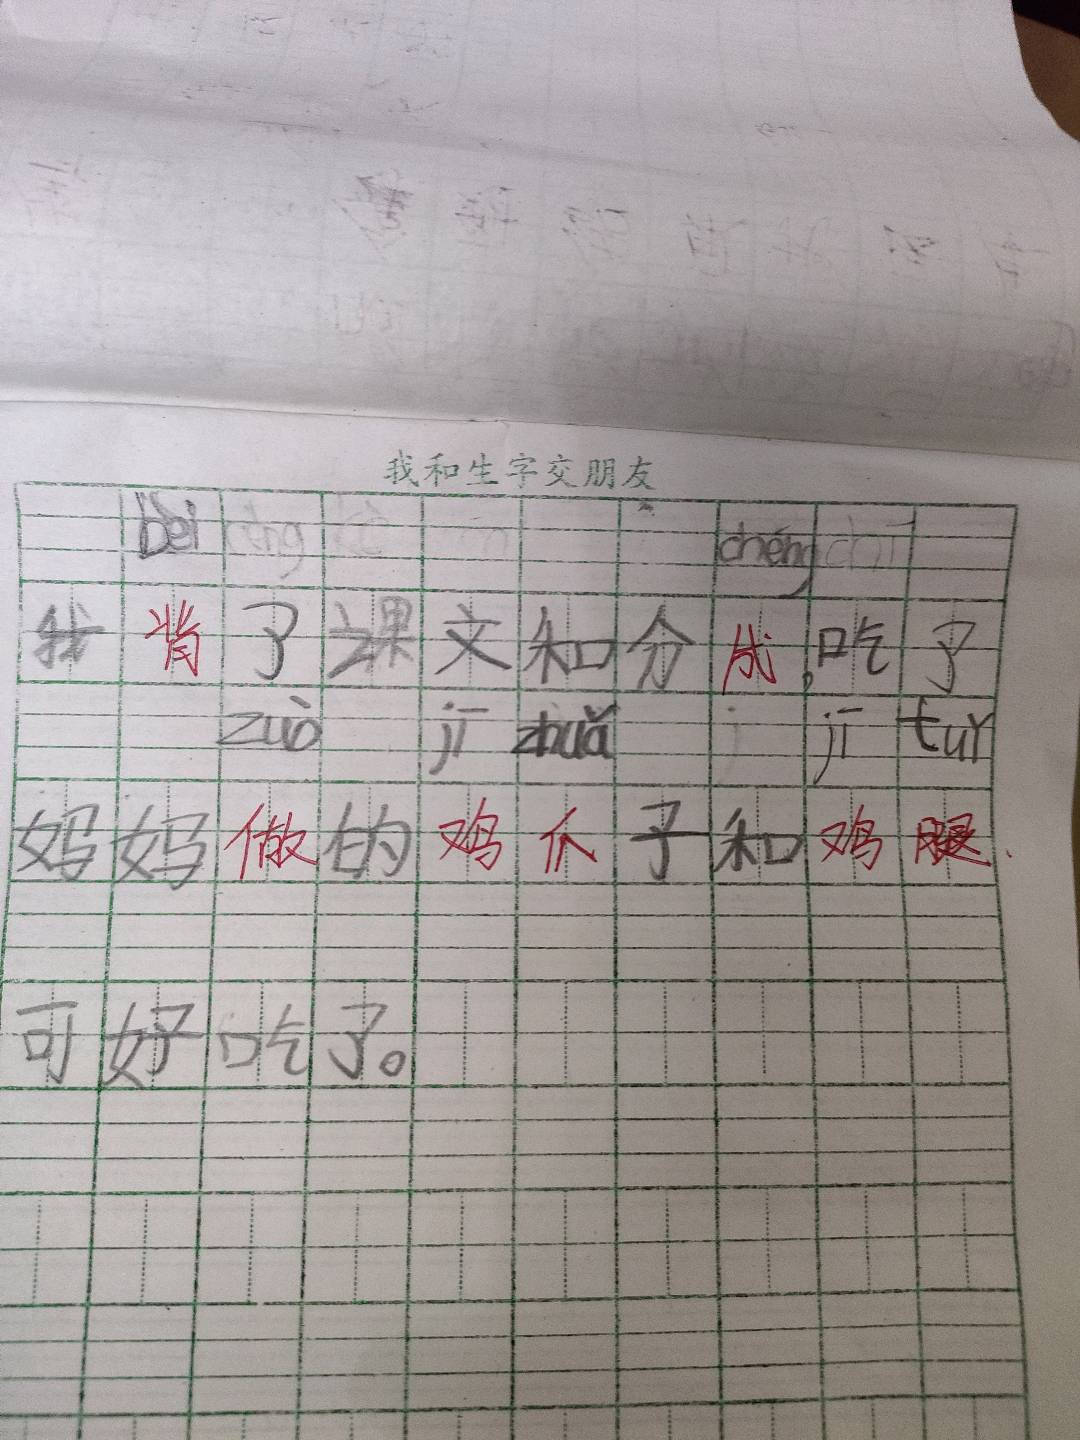 我和生字交朋友
bèi chéng chī
我背了课文和分成,吃了
zuò jī zhuǎ jī tuǐ
妈妈做的鸡爪子和鸡腿.
可好吃了。